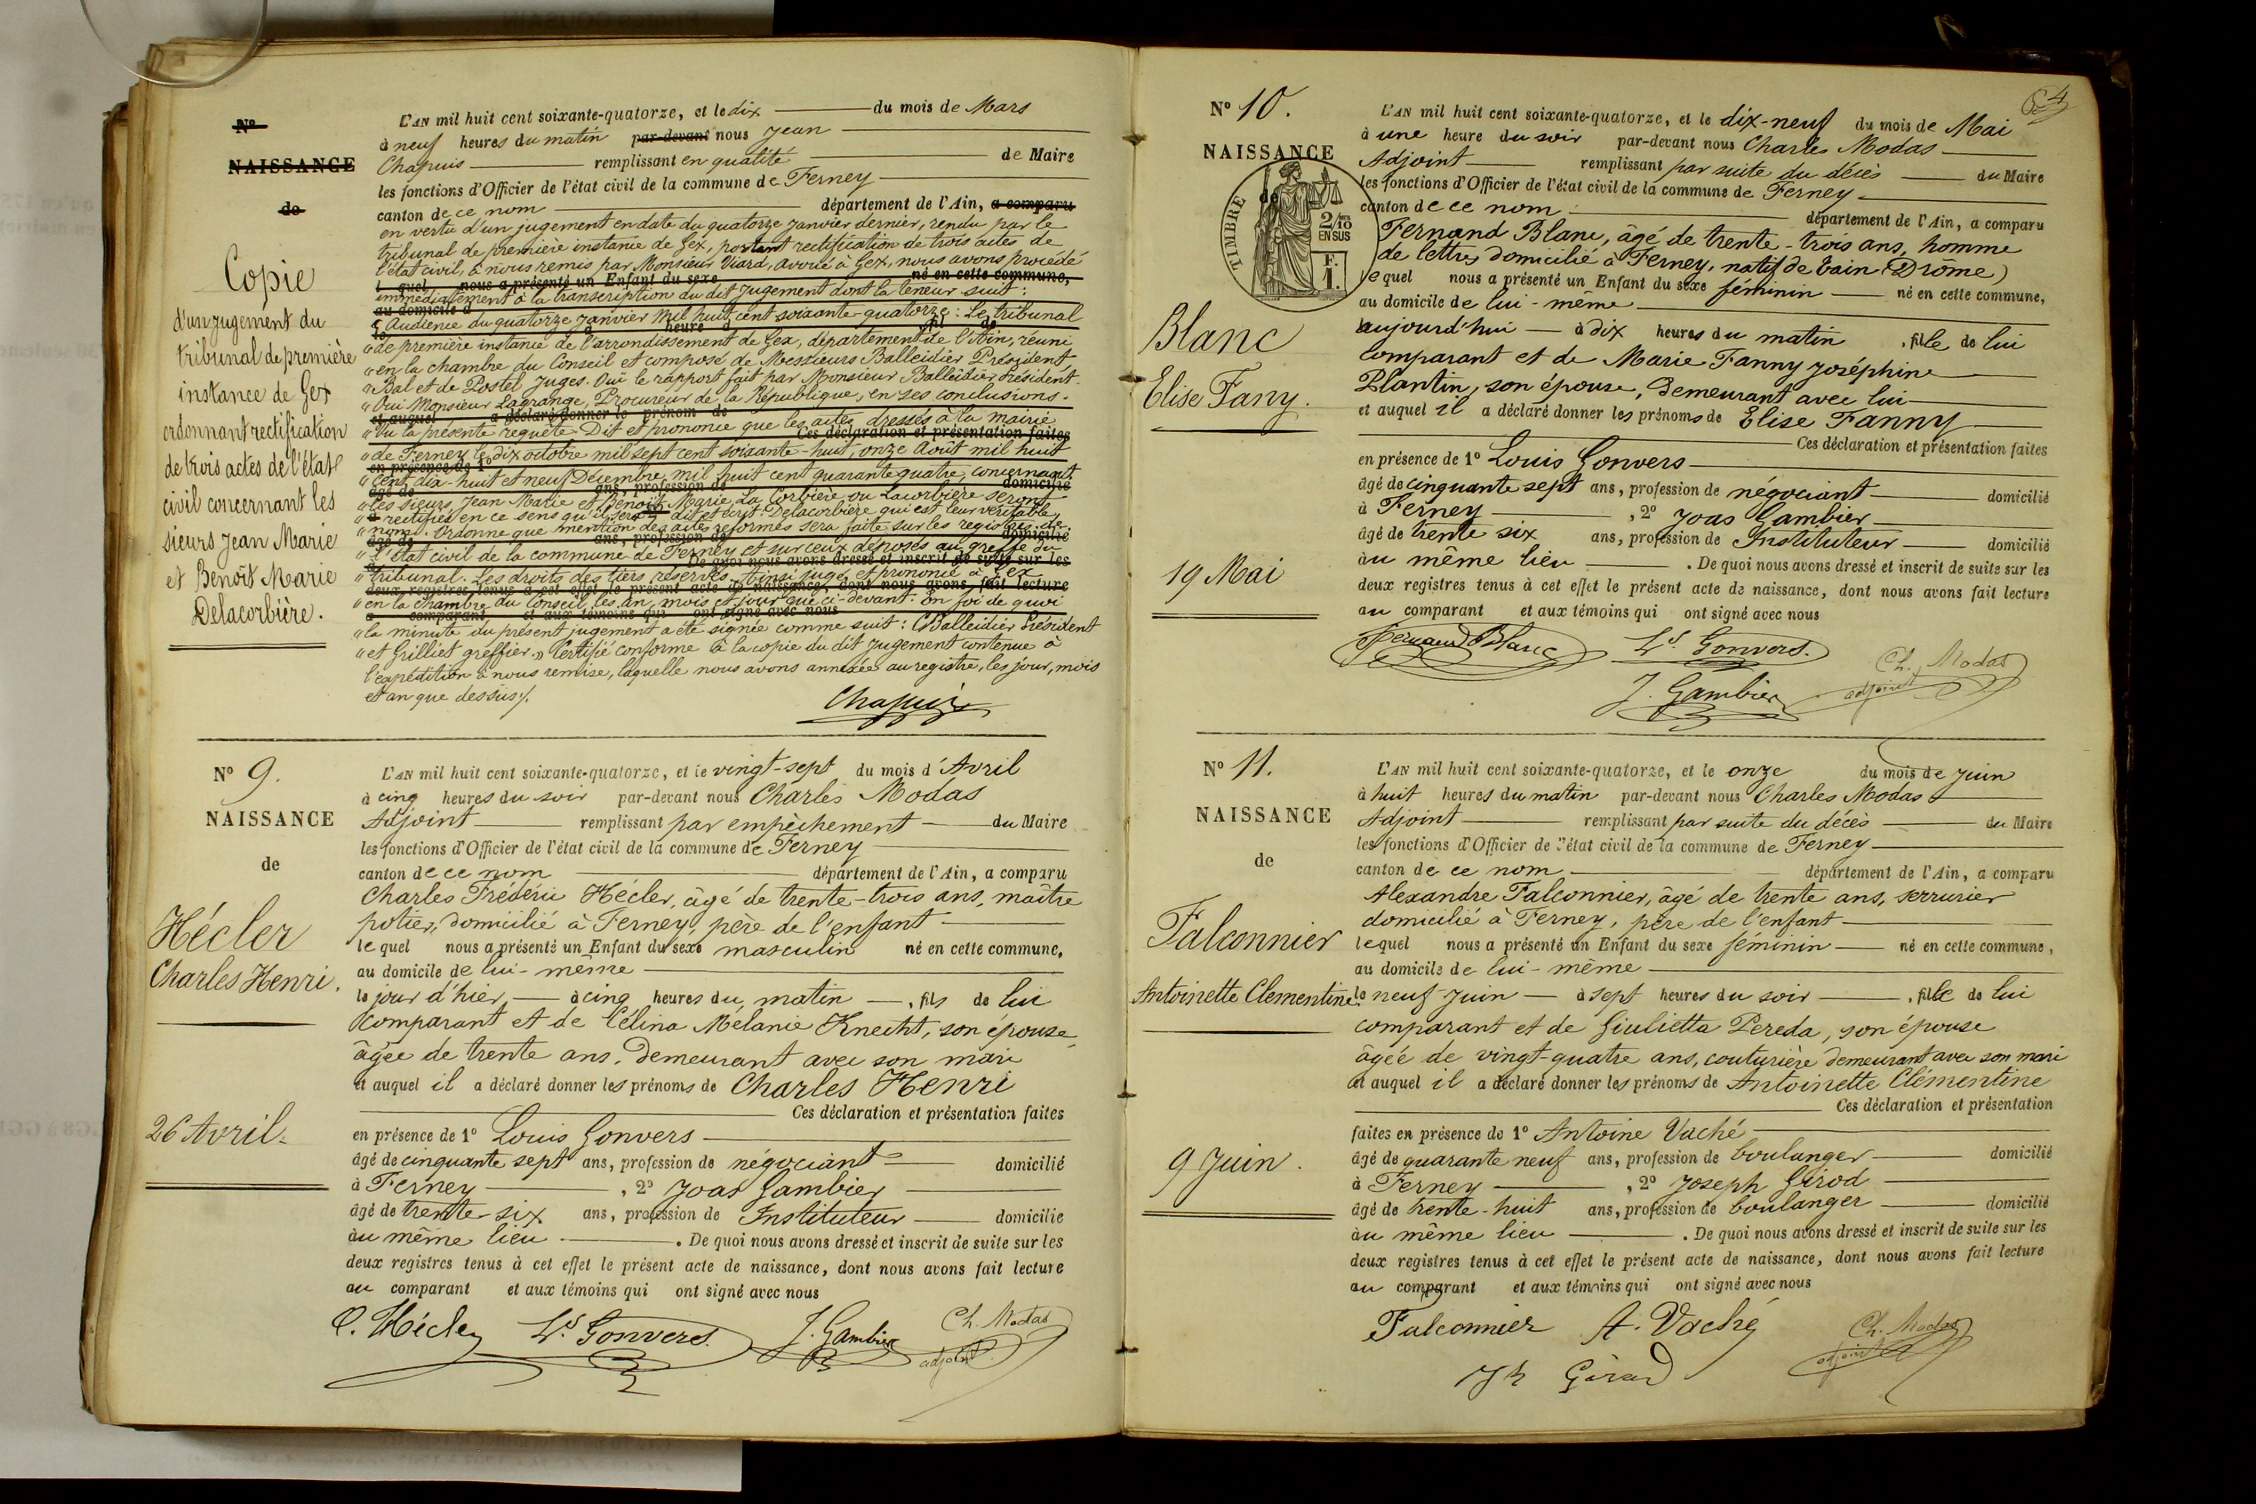 N°
NAISSANCE
de
Copie
d'un jugement du
tribunal de première
instance de Gex
ordonnant rectification
de trois actes de l'état
civil concernant les
sieurs Jean Marie
et Benoît Marie
Delacorbière.
L'AN mil huit cent soixante-quatorze, et le dix du mois de Mars
à neuf heures du matin par-devant nous Jean
Chapuis remplissant en qualité de Maire
les fonctions d'Officier de l'état civil de la commune de Ferney
canton de ce nom département de l'Ain, a comparu
en vertu d'un jugement en date du quatorze Janvier dernier, rendu par le
tribunal de première instance de Gex, portant rectification de trois actes de
l'état civil, à nous remis par Monsieur Viard, avoué à Gex, nous avons procédé
l quel nous a présenté un Enfant du sexe né en cette commune,
immédiatement à la transcription du dit Jugement dont la teneur suit :
au domicile d
« Audience du quatorze Janvier Mil huit cent soixante-quatorze : Le tribunal
le à heure d fil de
« de première instance de l'arrondissement de Gex, département de l'Ain, réuni
« en la chambre du Conseil et composé de Messieurs Balleidier Président
« Bal et de Postel Juges. Ouï le rapport fait par Monsieur Balleidier Président.
« Oui Monsieur Lagrange, Procureur de la République, en ses conclusions.
et auquel a déclaré donner le prénom de
« Vu la présente requête. Dit et prononce que les actes dressés à la mairie
Ces déclaration et présentation faites
« de Ferney le dix octobre mil sept cent soixante-huit, onze Août mil huit
en présence de 1°
« cent dix-huit et neuf Décembre mil huit cent quarante quatre, concernant
âgé de ans, profession de domicilié
« les sieurs Jean Marie et Benoît Marie La Corbière ou Lacorbière seront
« rectifiés en ce sens qu'il sera dit et écrit : Delacorbière qui est leur véritable
« nom. Ordonne que mention des actes réformés sera faite sur les registres de
âgé de ans, profession de domicilié
« l'état civil de la commune de Ferney et sur ceux déposés au greffe du
De quoi nous avons dressé et inscrit de suite sur les
« tribunal. Les droits des tiers réservés. Ainsi jugé et prononcé à Gex
deux registres tenus à cet effet le présent acte de naissance, dont nous avons fait lecture
« en la chambre du Conseil, les an, mois et jour que ci-devant. En foi de quoi
a comparant, et aux témoins qui ont signé avec nous
« la minute du présent jugement a été signée comme suit : CBalleidier Président
« et Grilliet greffier. » Certifié conforme à la copie du dit Jugement contenue à
l'expédition à nous remise, laquelle nous avons annexée au registre, les jour, mois
et an que dessus./.
Chapuis
N° 9.
NAISSANCE
de
Hécler
Charles Henri.
26 Avril.
L'AN mil huit cent soixante-quatorze, et le vingt-sept du mois d'Avril
à cinq heures du soir par-devant nous Charles Modas
Adjoint remplissant par empêchement du Maire
les fonctions d'Officier de l'état civil de la commune de Ferney
canton de ce nom département de l'Ain, a comparu
Charles Frédéric Hécler, âgé de trente-trois ans, maître
potier, domicilié à Ferney, père de l'enfant
lequel nous a présenté un Enfant du sexe masculin né en cette commune,
au domicile de lui-même
le jour d'hier, à cinq heures du matin, fils de lui
comparant et de Célina Mélanie Knecht, son épouse,
âgée de trente ans, demeurant avec son mari
et auquel il a déclaré donner les prénoms de Charles Henri
Ces déclaration et présentation faites
en présence de 1° Louis Gonvers
âgé de cinquante sept ans, profession de négociant domicilié
à Ferney, 2° Joas Gambier
âgé de trente six ans, profession de Instituteur domicilié
au même lieu. De quoi nous avons dressé et inscrit de suite sur les
deux registres tenus à cet effet le présent acte de naissance, dont nous avons fait lecture
au comparant et aux témoins qui ont signé avec nous
C. Hécler Ls. Gonvers. J. Gambier Ch. Modas
adjoint
64
N° 10.
NAISSANCE
de
TIMBRE
2/10 ES
EN SUS
F.
1.
Blanc
Elise Fany.
19 Mai
L'AN mil huit cent soixante-quatorze, et le dix-neuf du mois de Mai
à une heure du soir par-devant nous Charles Modas
Adjoint remplissant par suite du décès du Maire
les fonctions d'Officier de l'état civil de la commune de Ferney
canton de ce nom département de l'Ain, a comparu
Fernand Blanc, âgé de trente-trois ans, homme
de lettres domicilié à Ferney, natif de Tain (Drôme)
lequel nous a présenté un Enfant du sexe féminin né en cette commune,
au domicile de lui-même
aujourd'hui à dix heures du matin, fille de lui
comparant et de Marie Fanny Joséphine
Plantin, son épouse, demeurant avec lui
et auquel il a déclaré donner les prénoms de Elise Fanny
Ces déclaration et présentation faites
en présence de 1° Louis Gonvers
âgé de cinquante sept ans, profession de négociant domicilié
à Ferney, 2° Joas Gambier
âgé de trente six ans, profession de Instituteur domicilié
au même lieu. De quoi nous avons dressé et inscrit de suite sur les
deux registres tenus à cet effet le présent acte de naissance, dont nous avons fait lecture
au comparant et aux témoins qui ont signé avec nous
Fernand Blanc Ls. Gonvers. Ch. Modas
J. Gambier adjoint
N° 11.
NAISSANCE
de
Falconnier
Antoinette Clementine
9 Juin.
L'AN mil huit cent soixante-quatorze, et le onze du mois de Juin
à huit heures du matin par-devant nous Charles Modas
Adjoint remplissant par suite du décès du Maire
les fonctions d'Officier de l'état civil de la commune de Ferney
canton de ce nom département de l'Ain, a comparu
Alexandre Falconnier, âgé de trente ans, serrurier
domicilié à Ferney, père de l'enfant
lequel nous a présenté un Enfant du sexe féminin né en cette commune,
au domicile de lui-même
le neuf Juin à sept heures du soir, fille de lui
comparant et de Giulietta Pereda, son épouse
âgée de vingt-quatre ans, couturière demeurant avec son mari
et auquel il a déclaré donner les prénoms de Antoinette Clémentine
Ces déclaration et présentation
faites en présence de 1° Antoine Vaché
âgé de quarante neuf ans, profession de boulanger domicilié
à Ferney, 2° Joseph Girod
âgé de trente-huit ans, profession de boulanger domicilié
au même lieu. De quoi nous avons dressé et inscrit de suite sur les
deux registres tenus à cet effet le présent acte de naissance, dont nous avons fait lecture
au comparant et aux témoins qui ont signé avec nous
Falconnier A. Vaché Ch. Modas
adjoint
Jh Girod